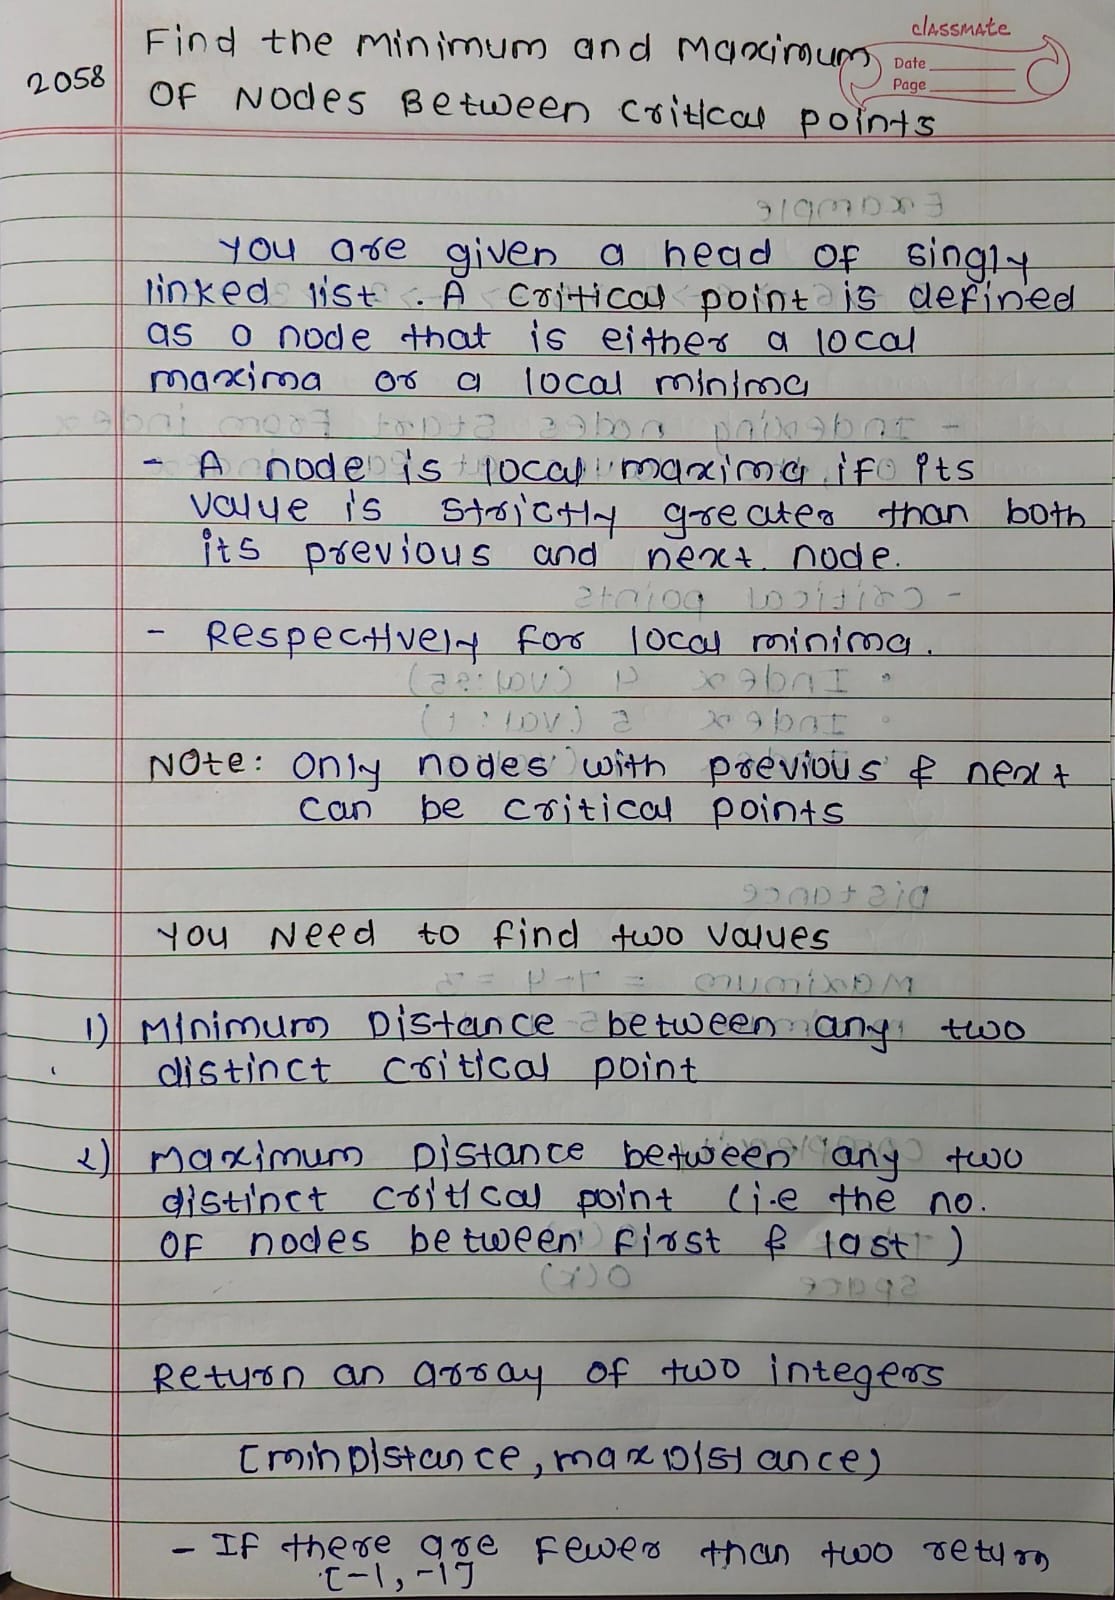 classmate
Date
Page
Find the Minimum and Maximum
2058
OF Nodes Between Critical points
You are given a head of singly
linked list. A critical point is defined
as a node that is either a local
maxima or a local minima
- A node is local maxima if its
value is strictly greater than both
its previous and next node.
- Respectively for local minima.
Note: Only nodes with previous & next
can be critical points
You Need to find two values
1) Minimum Distance between any two
distinct critical point
2) Maximum Distance between any two
distinct critical point (i.e the no.
OF nodes between first & last)
Return an array of two integers
[minDistance, maxDistance)
- If there are Fewer than two return
[-1, -1]